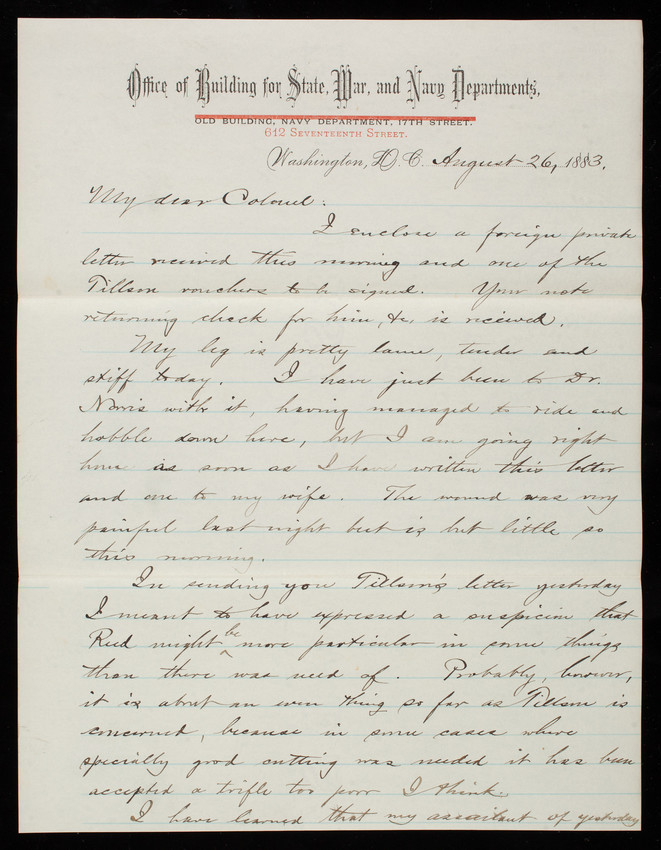 Office of Building for State, War, and Navy Departments,
OLD BUILDING, NAVY DEPARTMENT, 17TH STREET.
612 SEVENTEENTH STREET.
Washington, D.C. August 26, 1883.
My dear Colonel:
I enclose a foreign private
letter received this morning and one of the
Tillson vouchers to be signed. Your note
returning check for him, &c, is received.
My leg is pretty lame, tender and
stiff today. I have just been to Dr.
Norris with it, having managed to ride and
hobble down here, but I am going right
home as soon as I have written this letter
and one to my wife. The wound was very
painful last night but is but little so
this morning.
In sending you Tillson's letter yesterday
I meant to have expressed a suspicion that
Reed might be more particular in some things
than there was need of. Probably, however,
it is about an even thing so far as Tillson is
concerned, because in some cases where
specially good cutting was needed it has been
accepted a trifle too poor I think.
I have learned that my assailant of yesterday